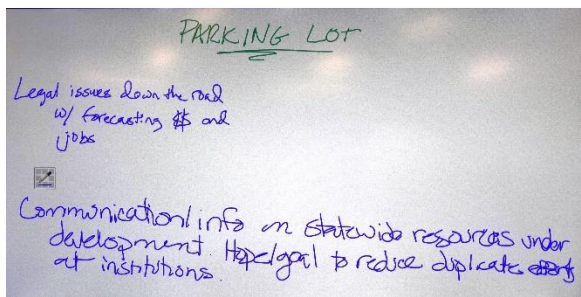 PARKING LOT
Legal issues down the road
w/ forecasting $$ and
jobs
Communication/info on statewide resources under
development. Hope/goal to reduce duplicate efforts
at institutions.